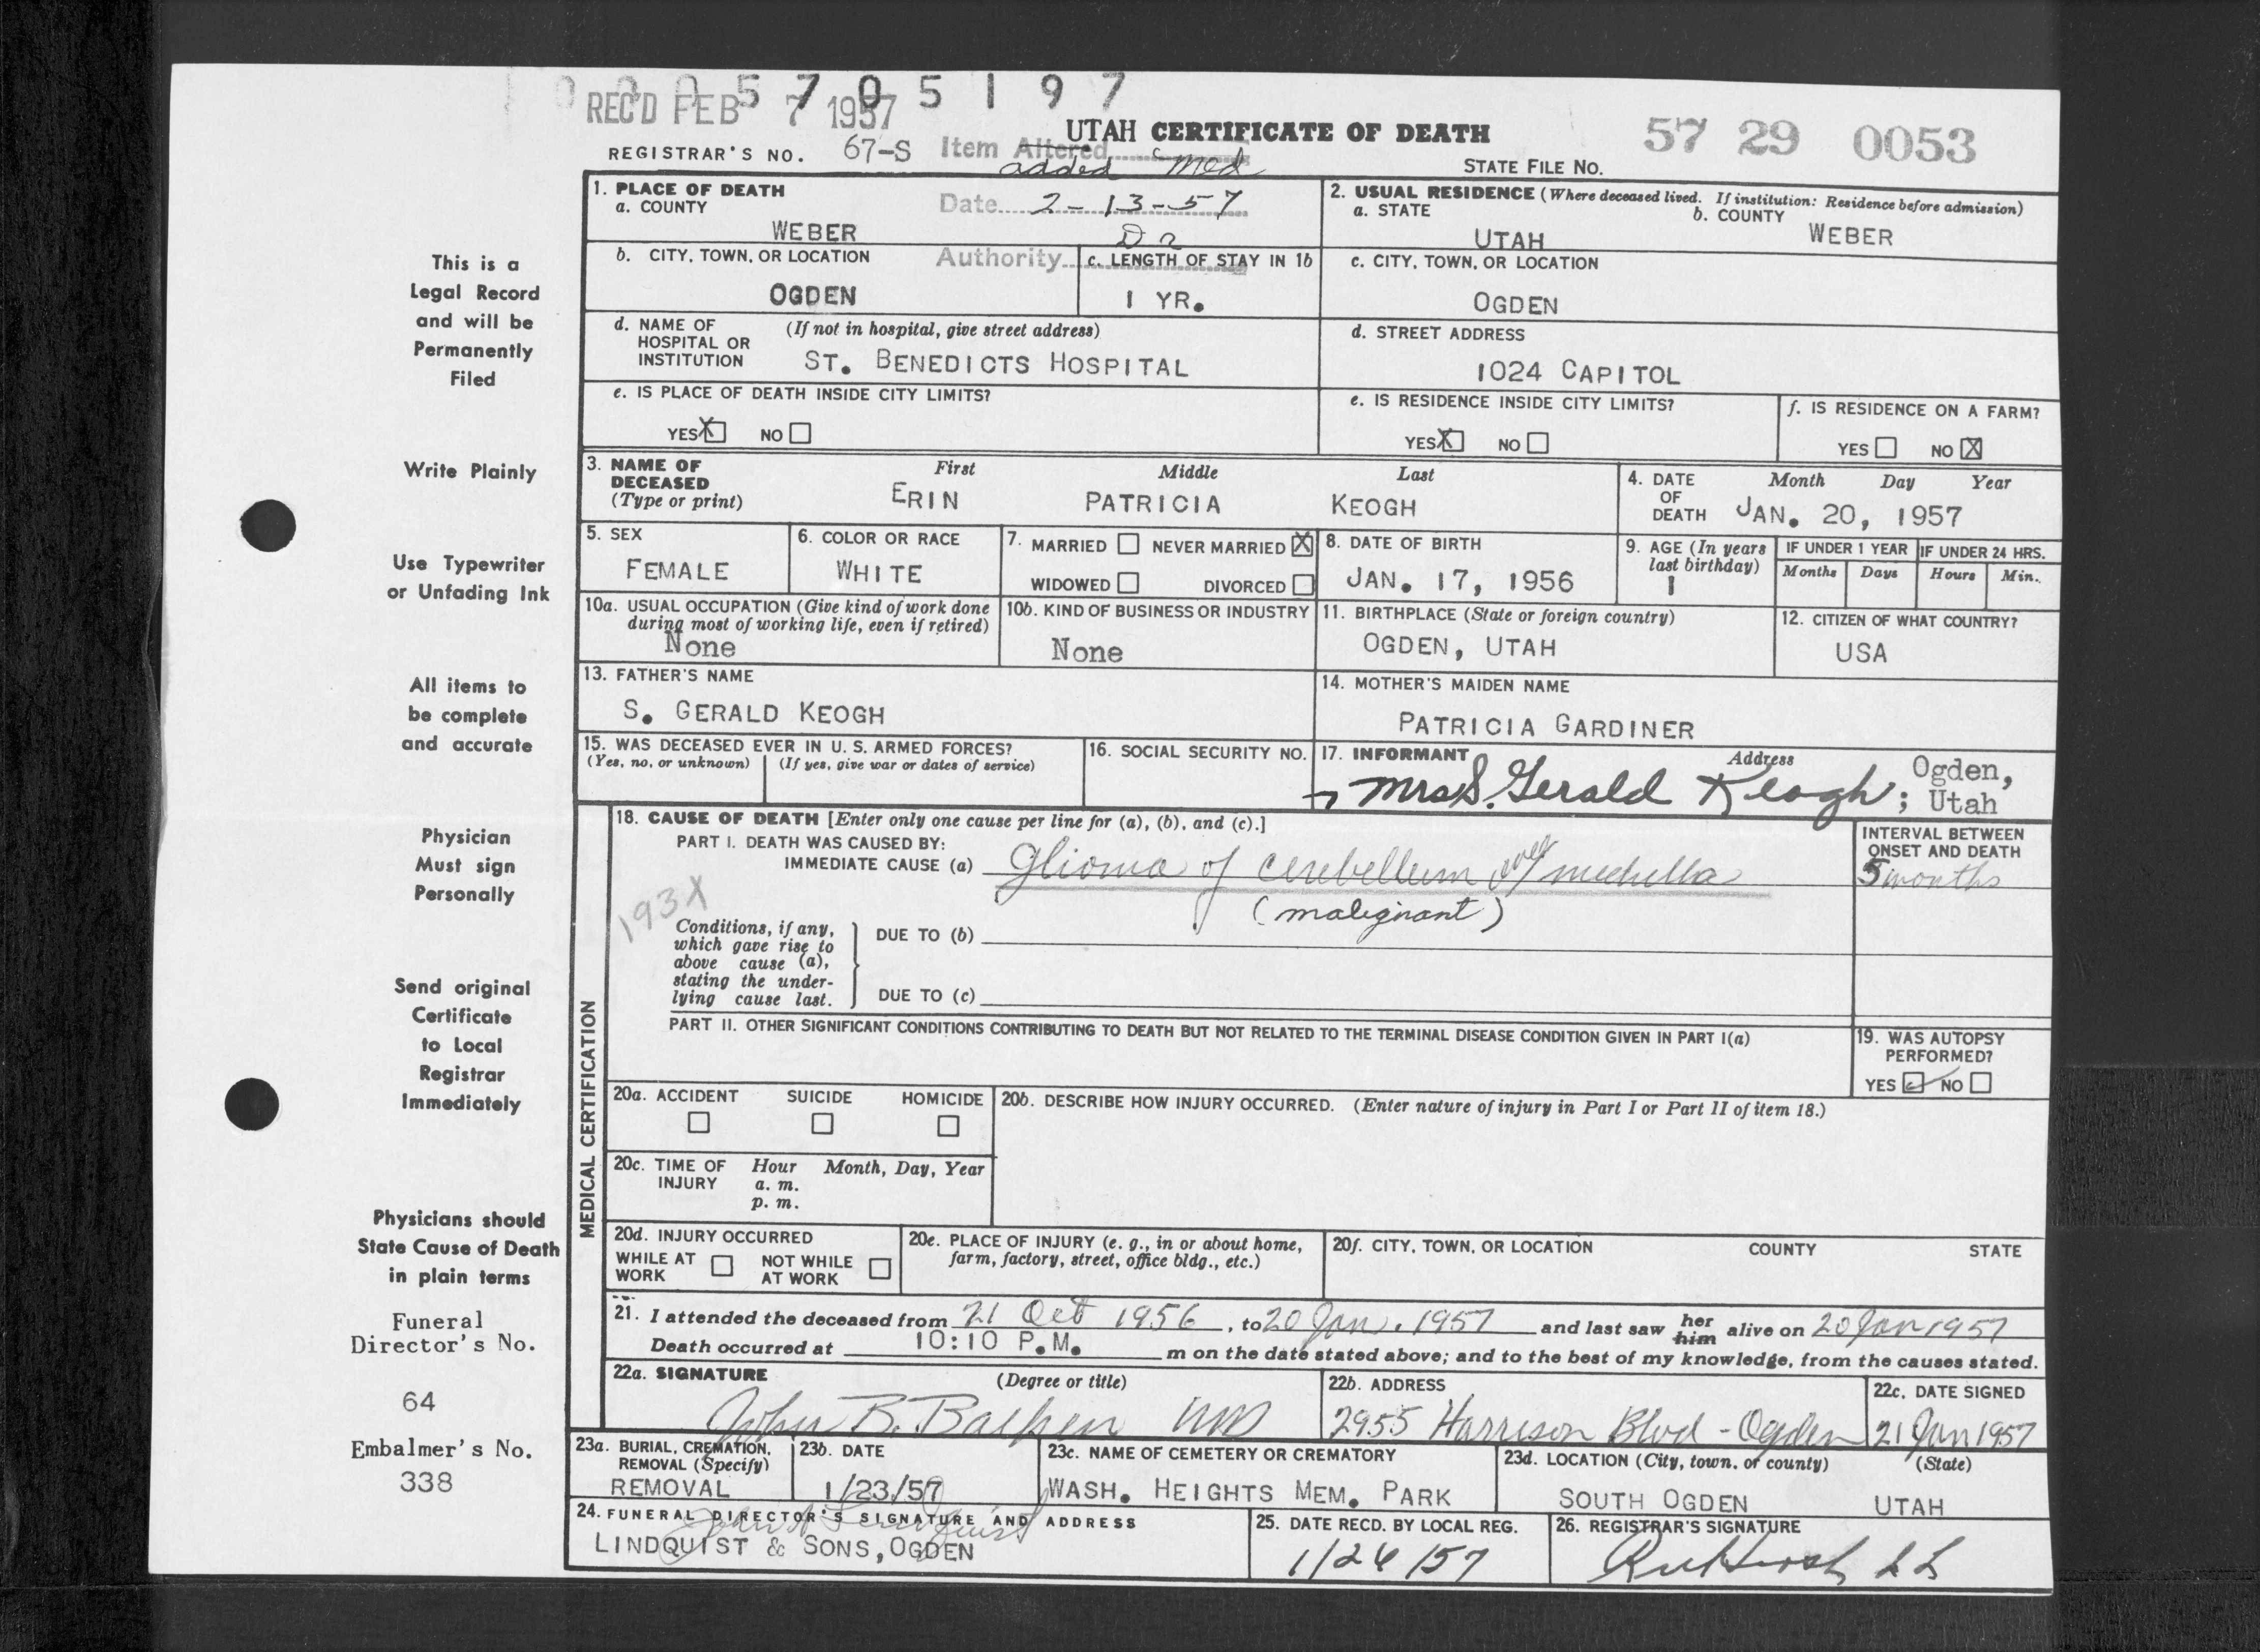 0 0 0 5 7 0 5 1 9 7
REC'D FEB 7 1957
UTAH CERTIFICATE OF DEATH
57 29 0053
REGISTRAR'S NO. 67-S
Item Altered
added Med
STATE FILE NO.
Date 2-13-57
Dr
Authority
1. PLACE OF DEATH
a. COUNTY
WEBER
2. USUAL RESIDENCE (Where deceased lived. If institution: Residence before admission)
a. STATE
UTAH
b. COUNTY
WEBER
b. CITY, TOWN, OR LOCATION
OGDEN
c. LENGTH OF STAY IN 1b
1 YR.
c. CITY, TOWN, OR LOCATION
OGDEN
d. NAME OF HOSPITAL OR INSTITUTION
(If not in hospital, give street address)
ST. BENEDICTS HOSPITAL
d. STREET ADDRESS
1024 CAPITOL
e. IS PLACE OF DEATH INSIDE CITY LIMITS?
YES X NO
e. IS RESIDENCE INSIDE CITY LIMITS?
YES X NO
f. IS RESIDENCE ON A FARM?
YES NO X
3. NAME OF DECEASED
(Type or print)
First Middle Last
ERIN PATRICIA KEOGH
4. DATE OF DEATH
Month Day Year
JAN. 20, 1957
5. SEX
FEMALE
6. COLOR OR RACE
WHITE
7. MARRIED NEVER MARRIED X
WIDOWED DIVORCED
8. DATE OF BIRTH
JAN. 17, 1956
9. AGE (In years last birthday)
1
IF UNDER 1 YEAR
Months Days
IF UNDER 24 HRS.
Hours Min.
10a. USUAL OCCUPATION (Give kind of work done during most of working life, even if retired)
None
10b. KIND OF BUSINESS OR INDUSTRY
None
11. BIRTHPLACE (State or foreign country)
OGDEN, UTAH
12. CITIZEN OF WHAT COUNTRY?
USA
13. FATHER'S NAME
S. GERALD KEOGH
14. MOTHER'S MAIDEN NAME
PATRICIA GARDINER
15. WAS DECEASED EVER IN U. S. ARMED FORCES?
(Yes, no, or unknown) (If yes, give war or dates of service)
16. SOCIAL SECURITY NO.
17. INFORMANT Address
Mrs S. Gerald Keogh; Ogden, Utah
MEDICAL CERTIFICATION
18. CAUSE OF DEATH [Enter only one cause per line for (a), (b), and (c).]
PART I. DEATH WAS CAUSED BY:
IMMEDIATE CAUSE (a) Glioma of cerebellum medulla
(malignant)
193X
INTERVAL BETWEEN ONSET AND DEATH
5 months
Conditions, if any, which gave rise to above cause (a), stating the underlying cause last.
DUE TO (b)
DUE TO (c)
PART II. OTHER SIGNIFICANT CONDITIONS CONTRIBUTING TO DEATH BUT NOT RELATED TO THE TERMINAL DISEASE CONDITION GIVEN IN PART I(a)
19. WAS AUTOPSY PERFORMED?
YES NO
20a. ACCIDENT SUICIDE HOMICIDE
20b. DESCRIBE HOW INJURY OCCURRED. (Enter nature of injury in Part I or Part II of item 18.)
20c. TIME OF INJURY
Hour Month, Day, Year
a. m.
p. m.
20d. INJURY OCCURRED
WHILE AT WORK NOT WHILE AT WORK
20e. PLACE OF INJURY (e. g., in or about home, farm, factory, street, office bldg., etc.)
20f. CITY, TOWN, OR LOCATION COUNTY STATE
21. I attended the deceased from 21 Oct 1956, to 20 Jan. 1957 and last saw her him alive on 20 Jan 1957
Death occurred at 10:10 P.M. m on the date stated above; and to the best of my knowledge, from the causes stated.
22a. SIGNATURE (Degree or title)
John B. MD
22b. ADDRESS
2955 Harrison Blvd - Ogden
22c. DATE SIGNED
21 Jan 1957
23a. BURIAL, CREMATION, REMOVAL (Specify)
REMOVAL
23b. DATE
1/23/57
23c. NAME OF CEMETERY OR CREMATORY
WASH. HEIGHTS MEM. PARK
23d. LOCATION (City, town, or county) (State)
SOUTH OGDEN UTAH
24. FUNERAL DIRECTOR'S SIGNATURE AND ADDRESS
John A Lindquist
LINDQUIST & SONS, OGDEN
25. DATE RECD. BY LOCAL REG.
1/24/57
26. REGISTRAR'S SIGNATURE
This is a
Legal Record
and will be
Permanently
Filed
Write Plainly
Use Typewriter
or Unfading Ink
All items to
be complete
and accurate
Physician
Must sign
Personally
Send original
Certificate
to Local
Registrar
Immediately
Physicians should
State Cause of Death
in plain terms
Funeral
Director's No.
64
Embalmer's No.
338